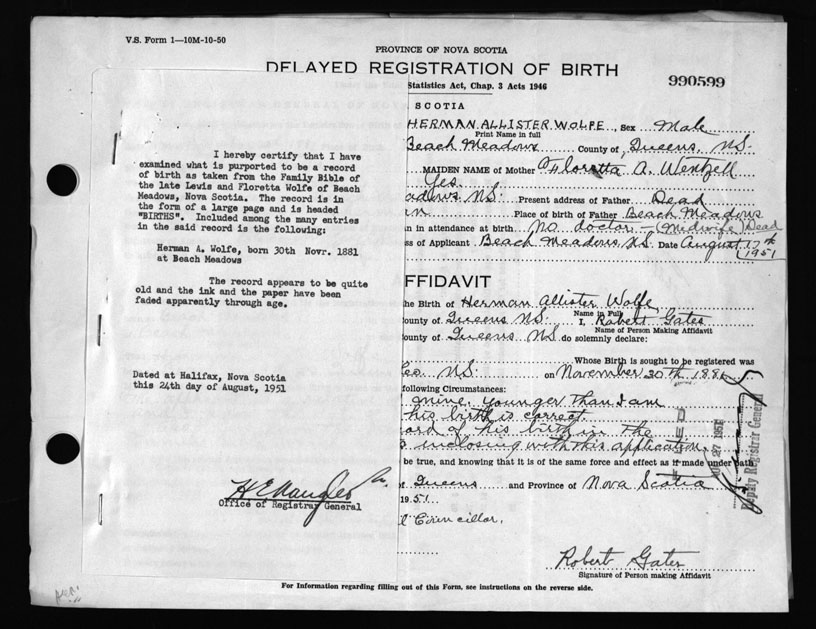 V.S. Form 1—10M-10-50
PROVINCE OF NOVA SCOTIA
DELAYED REGISTRATION OF BIRTH
990599
Statistics Act, Chap. 3 Acts 1946
SCOTIA
HERMAN ALLISTER WOLFE, Sex Male
Print Name in full
Beach Meadows County of Queens, N.S.
MAIDEN NAME of Mother Floretta A. Wentzell
Yes
adows N.S. Present address of Father Dead
an Place of birth of Father Beach Meadows
an in attendance at birth no doctor — (Midwife) Dead
ss of Applicant Beach Meadows N.S. Date August 17th 1951
I hereby certify that I have
examined what is purported to be a record
of birth as taken from the Family Bible of
the late Lewis and Floretta Wolfe of Beach
Meadows, Nova Scotia. The record is in
the form of a large page and is headed
"BIRTHS". Included among the many entries
in the said record is the following:
Herman A. Wolfe, born 30th Novr. 1881
at Beach Meadows
The record appears to be quite
old and the ink and the paper have been
faded apparently through age.
Dated at Halifax, Nova Scotia
this 24th day of August, 1951
Office of Registrar General
FFIDAVIT
he Birth of Herman Allister Wolfe
Name in Full
ounty of Queens N.S. I, Robert Gates
Name of Person Making Affidavit
ounty of Queens N.S. do solemnly declare:
Whose Birth is sought to be registered was
N.S. on November 30th 1881
following Circumstances:
mine, younger than I am
his birth is correct
ord of his birth in the
enclosing with this application.
be true, and knowing that it is of the same force and effect as if made under oath
of Queens and Province of Nova Scotia
1951
Councillor.
Deputy Registrar General
Robert Gates
Signature of Person making Affidavit
For Information regarding filling out of this Form, see instructions on the reverse side.